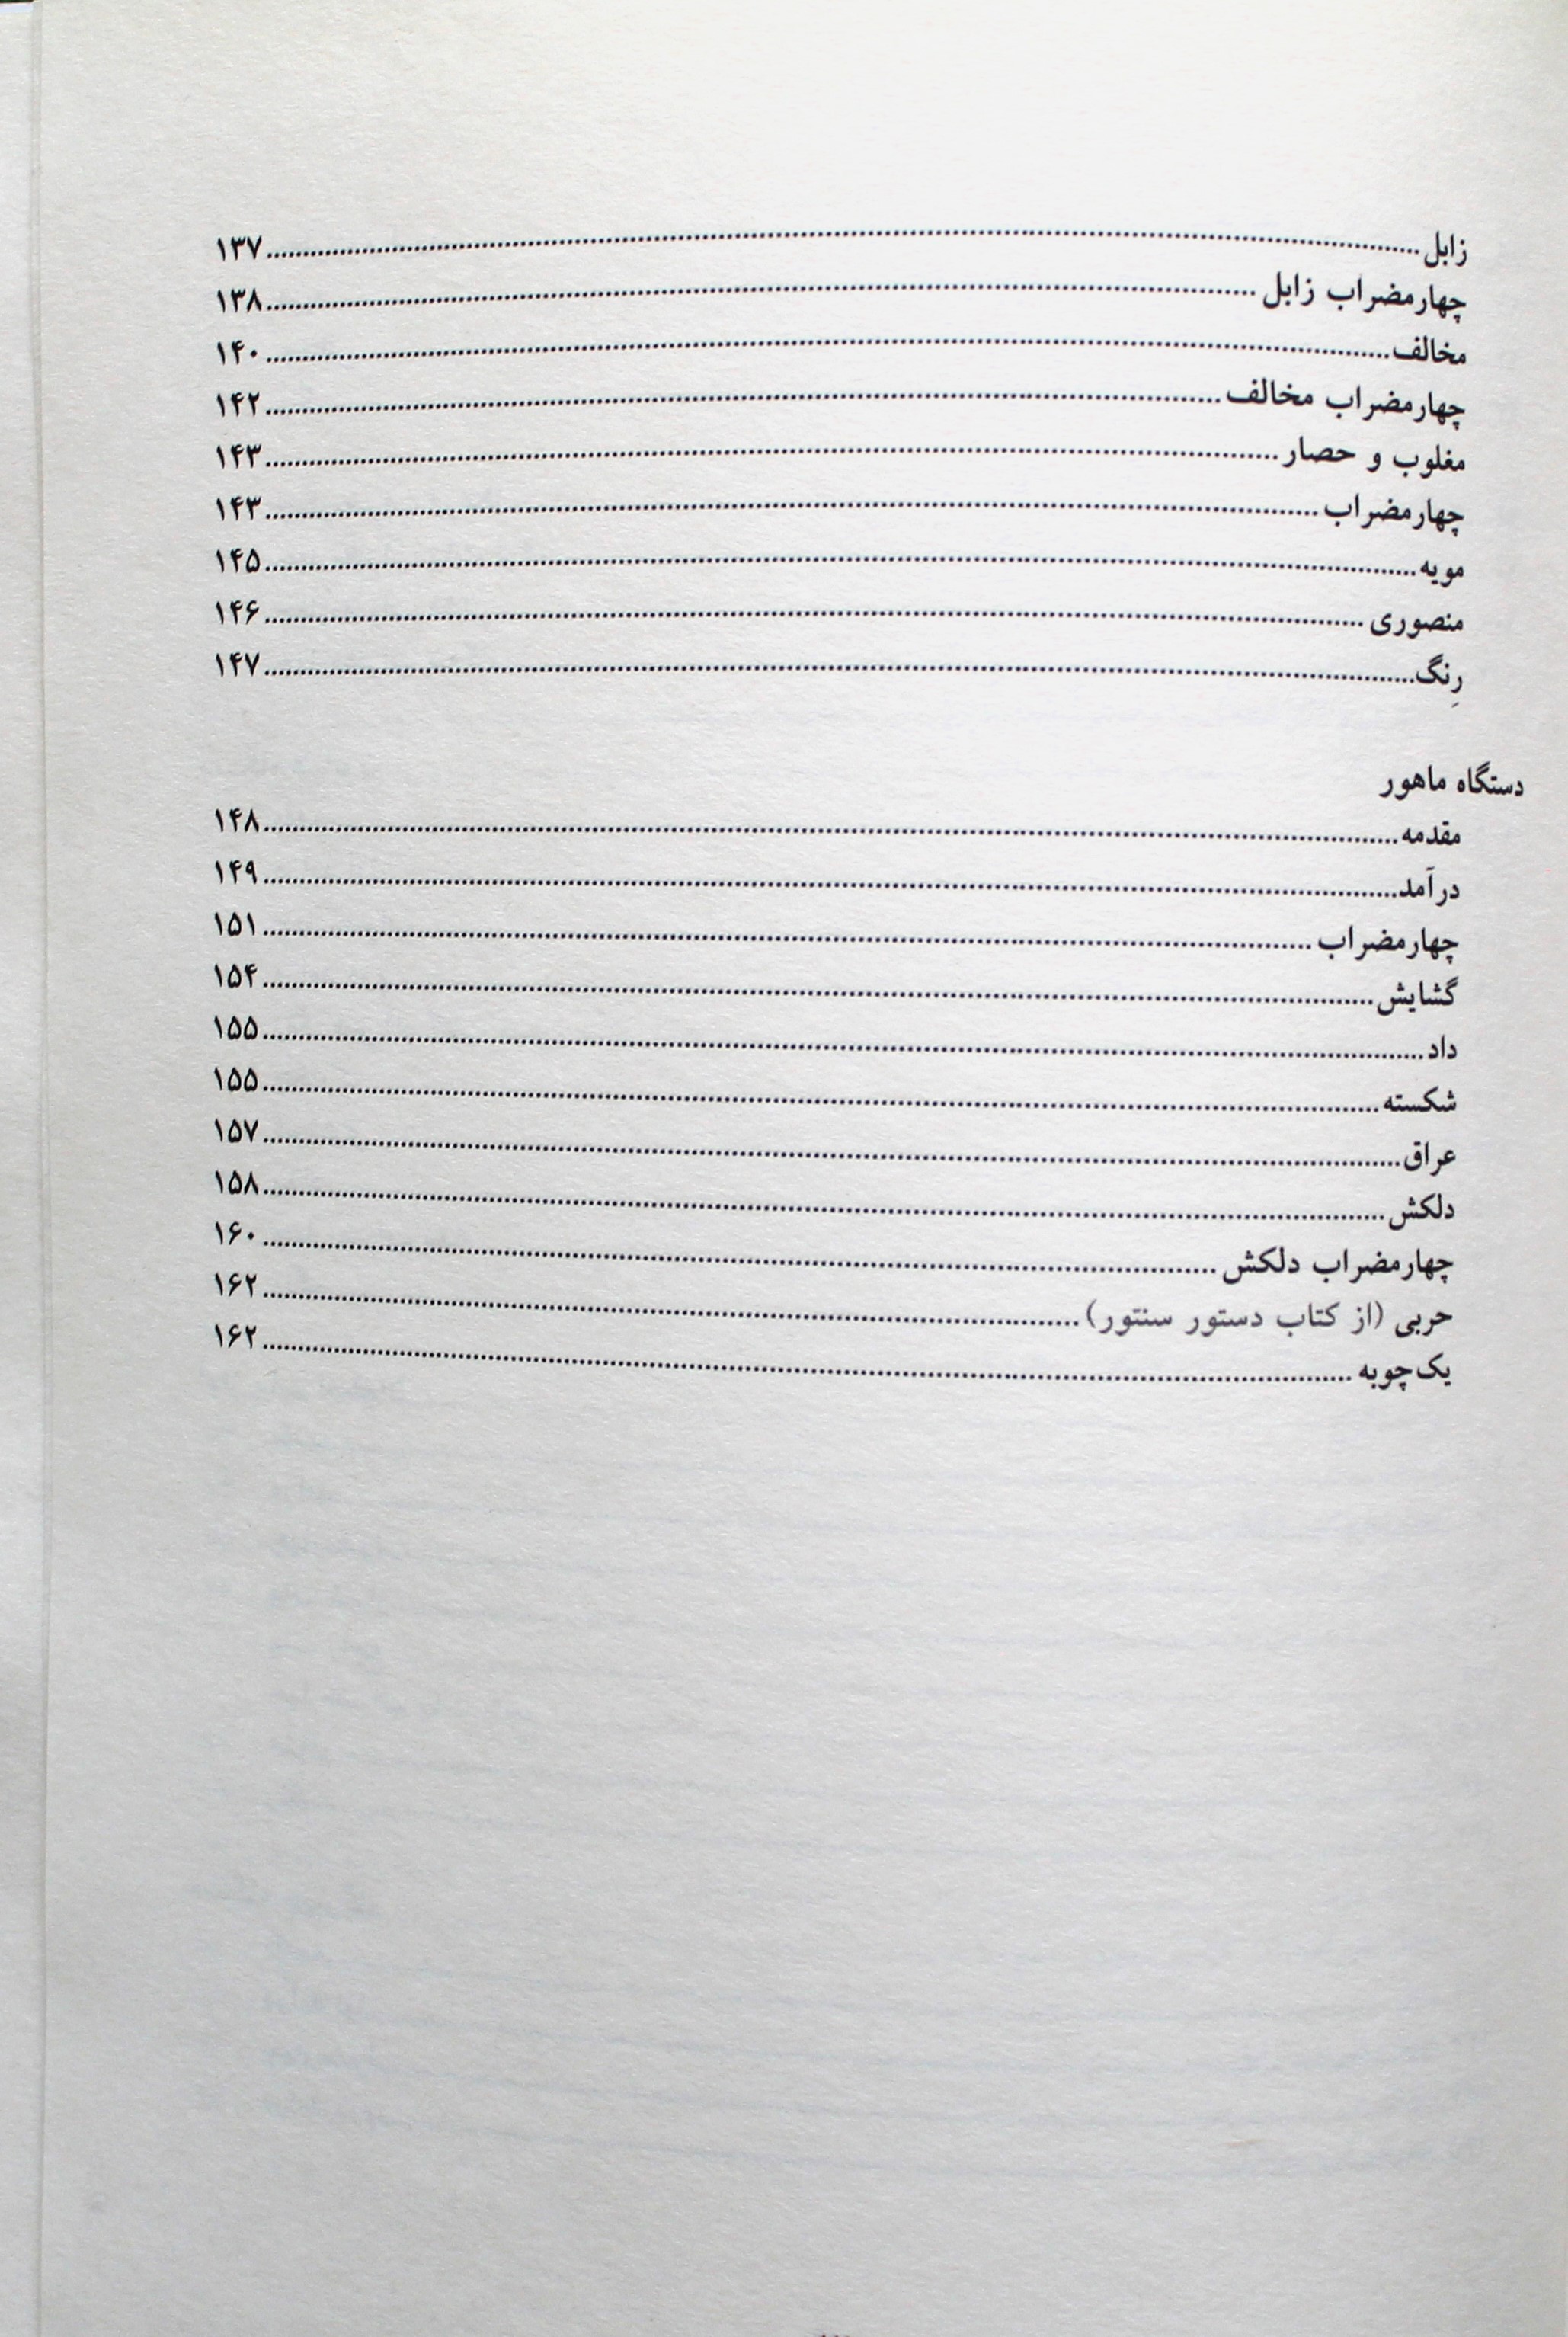 زابل................................۱۳۷
چهارمضراب زابل................................۱۳۸
مخالف................................۱۴۰
چهارمضراب مخالف................................۱۴۲
مغلوب و حصار................................۱۴۳
چهارمضراب................................۱۴۳
مویه................................۱۴۵
منصوری................................۱۴۶
رِنگ................................۱۴۷
دستگاه ماهور
مقدمه................................۱۴۸
درآمد................................۱۴۹
چهارمضراب................................۱۵۱
گشایش................................۱۵۴
داد................................۱۵۵
شکسته................................۱۵۵
عراق................................۱۵۷
دلکش................................۱۵۸
چهارمضراب دلکش................................۱۶۰
حربی (از کتاب دستور سنتور)................................۱۶۲
یک‌چوبه................................۱۶۲